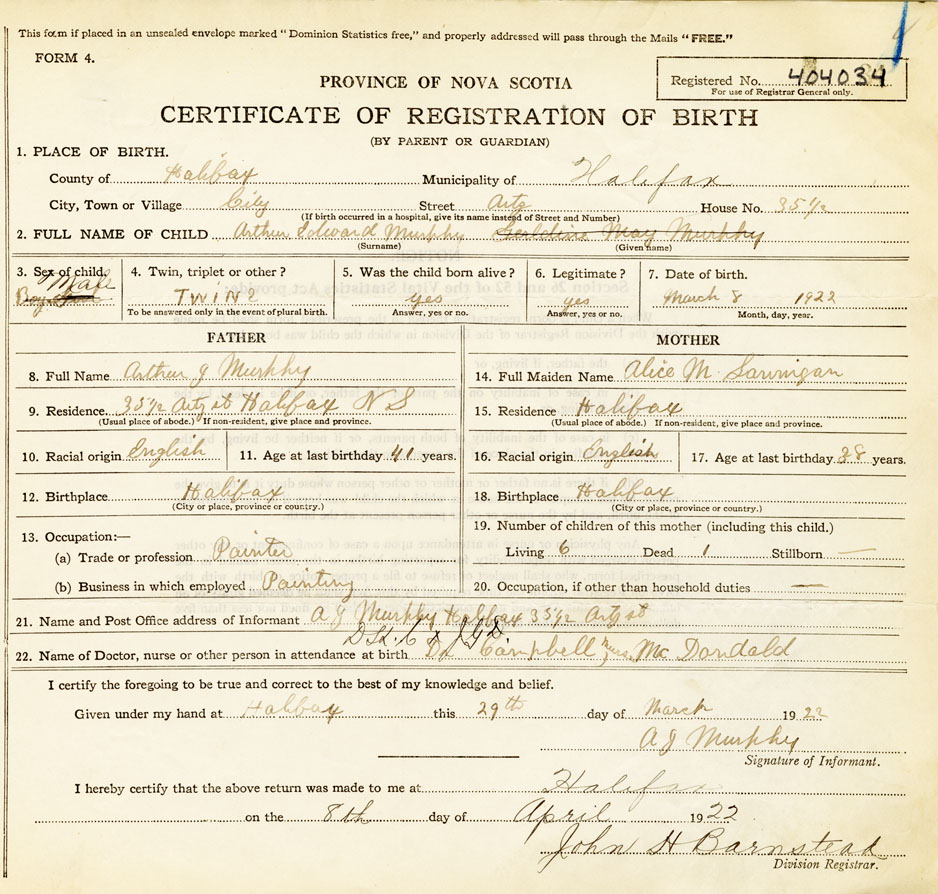 This form if placed in an unsealed envelope marked "Dominion Statistics free," and properly addressed will pass through the Mails "FREE."
FORM 4.
Registered No. 404034
For use of Registrar General only.
PROVINCE OF NOVA SCOTIA
CERTIFICATE OF REGISTRATION OF BIRTH
(BY PARENT OR GUARDIAN)
1. PLACE OF BIRTH.
County of Halifax Municipality of Halifax
City, Town or Village City Street Artz House No. 35 1/2
(If birth occurred in a hospital, give its name instead of Street and Number)
2. FULL NAME OF CHILD Arthur Edward Murphy Geraldine May Murphy
(Surname) (Given name)
3. Sex of child. 4. Twin, triplet or other? 5. Was the child born alive? 6. Legitimate? 7. Date of birth.
Male
Boy TWIN2 yes yes March 8 1922
To be answered only in the event of plural birth. Answer, yes or no. Answer, yes or no. Month, day, year.
FATHER MOTHER
8. Full Name Arthur J Murphy 14. Full Maiden Name Alice M.
9. Residence 35 1/2 Artz st Halifax N S 15. Residence Halifax
(Usual place of abode.) If non-resident, give place and province. (Usual place of abode.) If non-resident, give place and province.
10. Racial origin English 11. Age at last birthday 41 years. 16. Racial origin English 17. Age at last birthday 38 years.
12. Birthplace Halifax 18. Birthplace Halifax
(City or place, province or country.) (City or place, province or country.)
13. Occupation:— 19. Number of children of this mother (including this child.)
(a) Trade or profession Painter Living 6 Dead 1 Stillborn —
(b) Business in which employed Painting 20. Occupation, if other than household duties —
21. Name and Post Office address of Informant A J Murphy Halifax 35 1/2 Artz st
22. Name of Doctor, nurse or other person in attendance at birth Dr Campbell nurse Mc Dondald
I certify the foregoing to be true and correct to the best of my knowledge and belief.
Given under my hand at Halifax this 29th day of March 1922
A J Murphy
Signature of Informant.
I hereby certify that the above return was made to me at Halifax
on the 8th day of April 1922
John H Barnstead
Division Registrar.